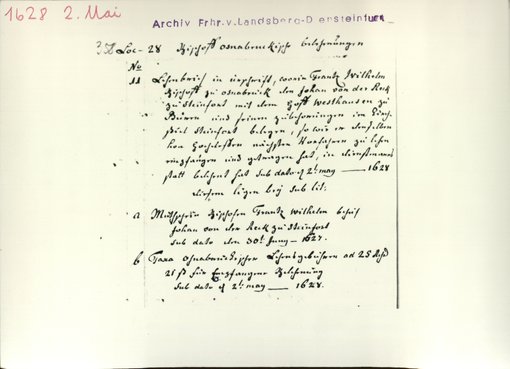 1628 2. Mai
Archiv Frhr.v.Landsberg-D ensteinfurt
Loc- 28 Bischoff osnabruckische belehnungen
No
11 Lehnbrieff in urschrifft, worin Frantz Wilhelm
Bischoff zu osnabruck den Johan von der Reck
zu Steinfort mit dem Hoff Westhausen zu
Büren und seinen zubehorungen im Kirch
spiel Steinfort belegen, so wie er denselben
von nechsten Vorfahren zu lehn
empfangen und getragen hat, in dienstmans
statt belehnet hat sub dato 2t. may — 1628
ligen bey sub lit:
a Bischofen Frantz Wilhelm
Johan von der Reck zu Steinfort
sub dato den 30t. Juny — 1627.
b Taxa osnabruckischer Lehnsgebühren ad 25
21 ß für Empfangene Belehnung
sub dato 2t. may — 1628.